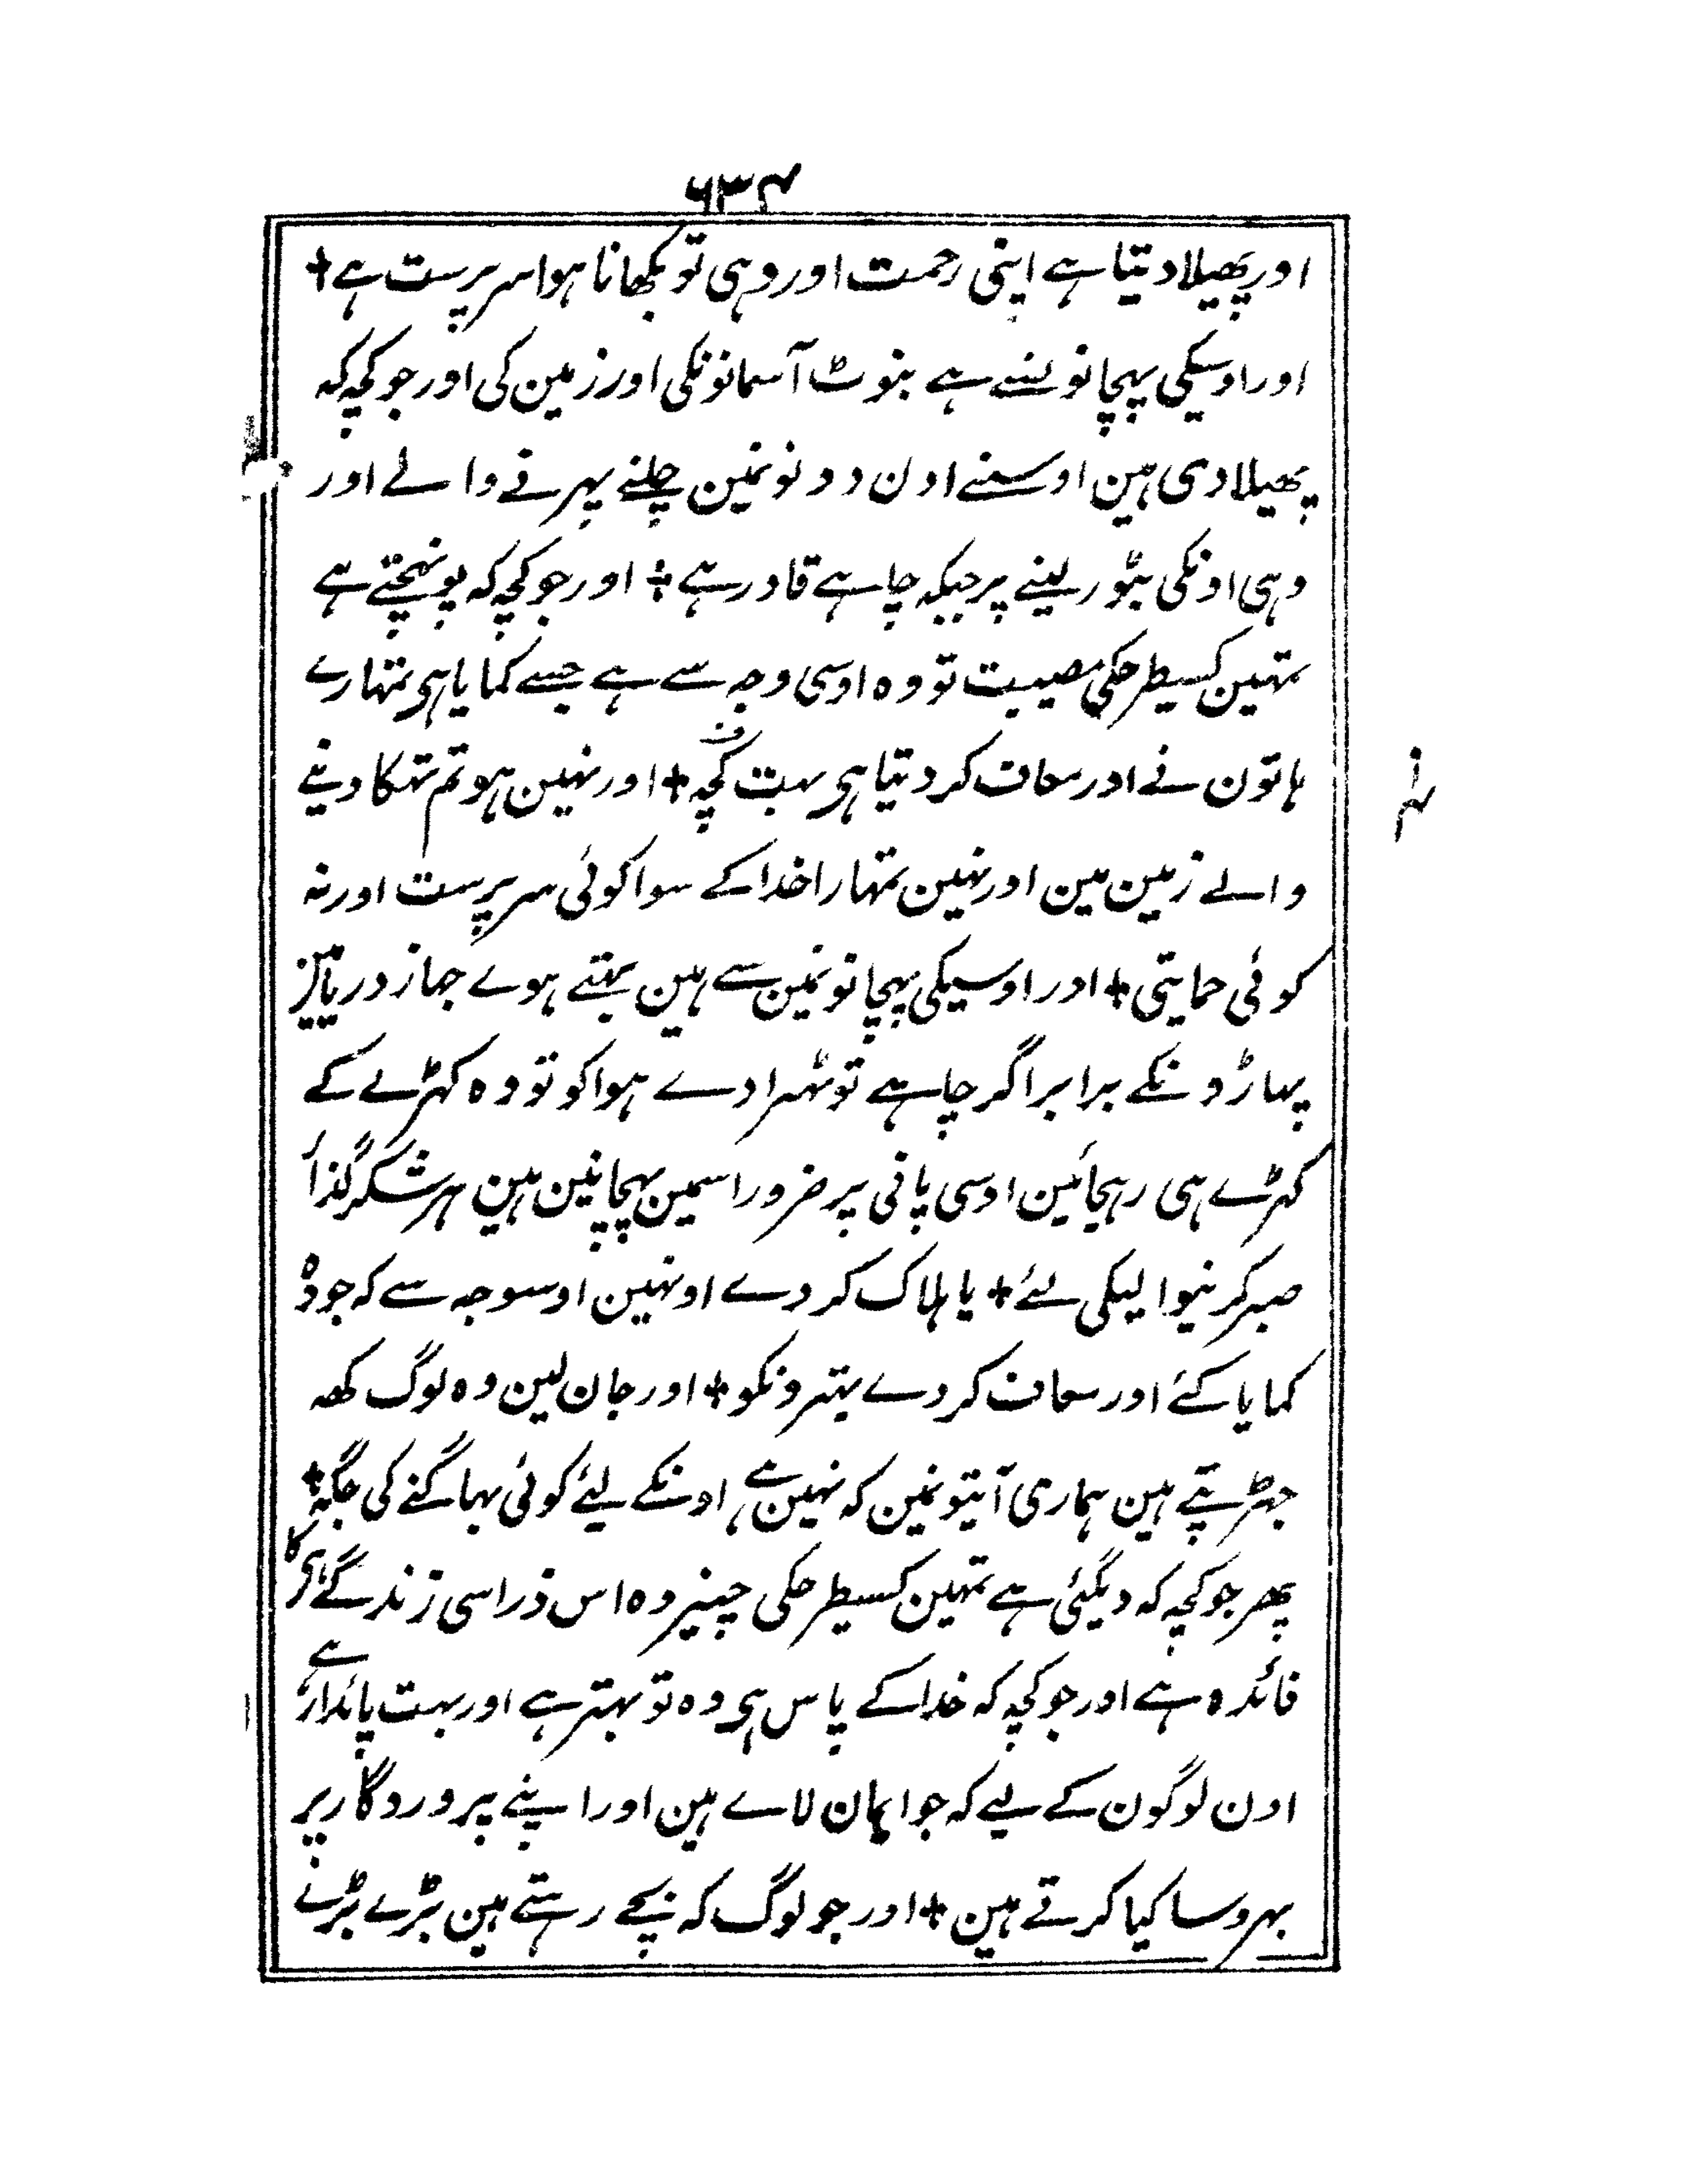 ۶۳۴
اور پھیلا دیتا ہے اپنی رحمت اور وہی تو بکھانا ہوا سرپرست ہے +
اور اوسیکی پہچانونسے ہے بنوٹ آسمانونکی اور زمین کی اور جو کچہ کہ
پھیلا دی ہین اوسنے اون دونونمین چلنے پہرنے والے اور
وہی اونکی بٹور لینے پر جبکہ چاہے قادر ہے + اور جو کچہ کہ پونہچتے ہے
تمہین کسیطرحکی مصیبت تو وہ اوسی وجہ سے ہے جسے کمایا ہی تمہارے
ہاتون نے اور معاف کر دیتا ہی بہت کچہ + اور نہین ہو تم تہکا دینے
والے زمین مین اور نہین تمہارا خدا کے سوا کوئی سرپرست اور نہ
کوئی حمایتی + اور اوسیکی پہچانونمین سے ہین بہتے ہوے جہاز دریا مین
پہاڑونکے برابر اگر چاہے تو ٹہرا دے ہوا کو تو وہ کہڑے کے
کہڑے ہی رہجائین اوسی پانی پر ضرور اسمین پہچانین ہین ہر شکر گذار
صبر کرنیوالیکی لئے + یا ہلاک کر دے اونہین اوسوجہ سے کہ جو وہ
کمایا کئے اور معاف کر دے بہترونکو + اور جان لین وہ لوگ کہ
جہڑپتے ہین ہماری آیتونمین کہ نہین ہے اونکے لیئے کوئی بہاگنے کی جگہ +
پھر جو کچہ کہ دیگئی ہے تمہین کسیطرحکی چیز وہ اس ذراسی زندگے ہی کا
فائدہ ہے اور جو کچہ کہ خدا کے پاس ہی وہ تو بہتر ہے اور بہت پائدار ہے
اون لوگون کے لیے کہ جو ایمان لاے ہین اور اپنے پروردگار پر
بہروسا کیا کرتے ہین + اور جو لوگ کہ بچے رہتے ہین بڑے بڑے